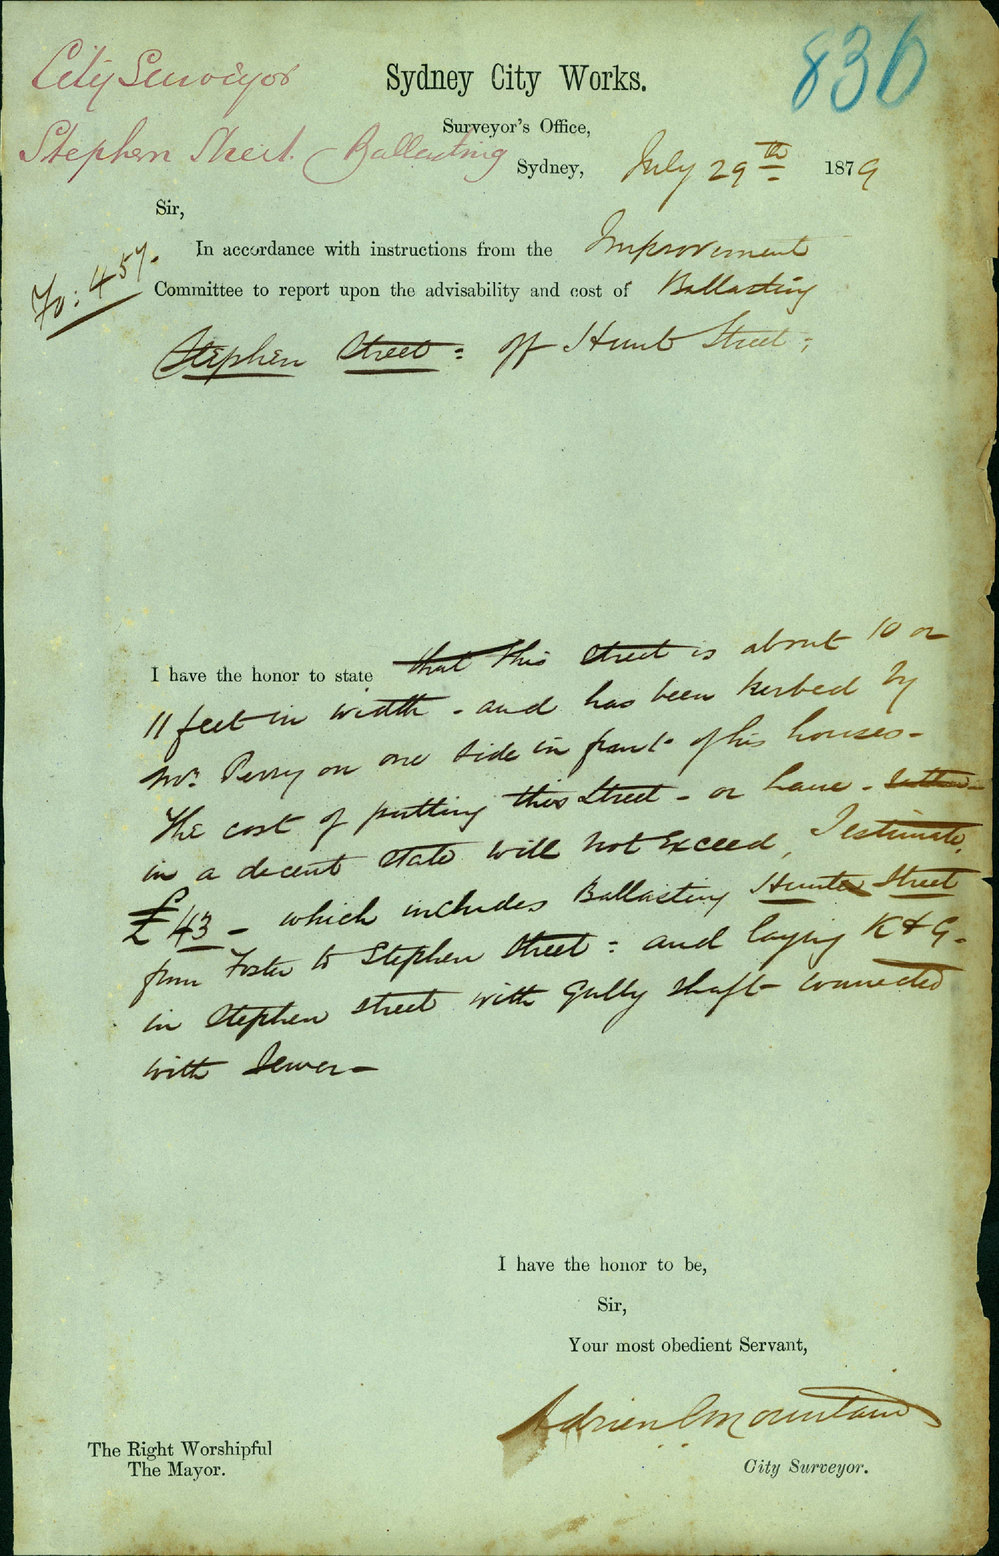 City Surveyor
Sydney City Works.
836
Surveyor's Office,
Stephen Street. Ballasting
Sydney, July 29th 1879
Sir,
In accordance with instructions from the Improvement
Fo: 457.
Committee to report upon the advisability and cost of Ballasting
Stephen Street: off Hunt Street;
I have the honor to state that this street is about 10 or
11 feet in width - and has been kerbed by
Mr. Perry on one side in front of his houses -
The cost of putting this Street - or lane -
in a decent state will not exceed, I estimate,
£43 - which includes Ballasting Hunt Street
from Foster to Stephen Street: and laying K & G.
in Stephen street with Gully shaft connected
with Sewer -
I have the honor to be,
Sir,
Your most obedient Servant,
Adrien C Mountain
The Right Worshipful
The Mayor.
City Surveyor.